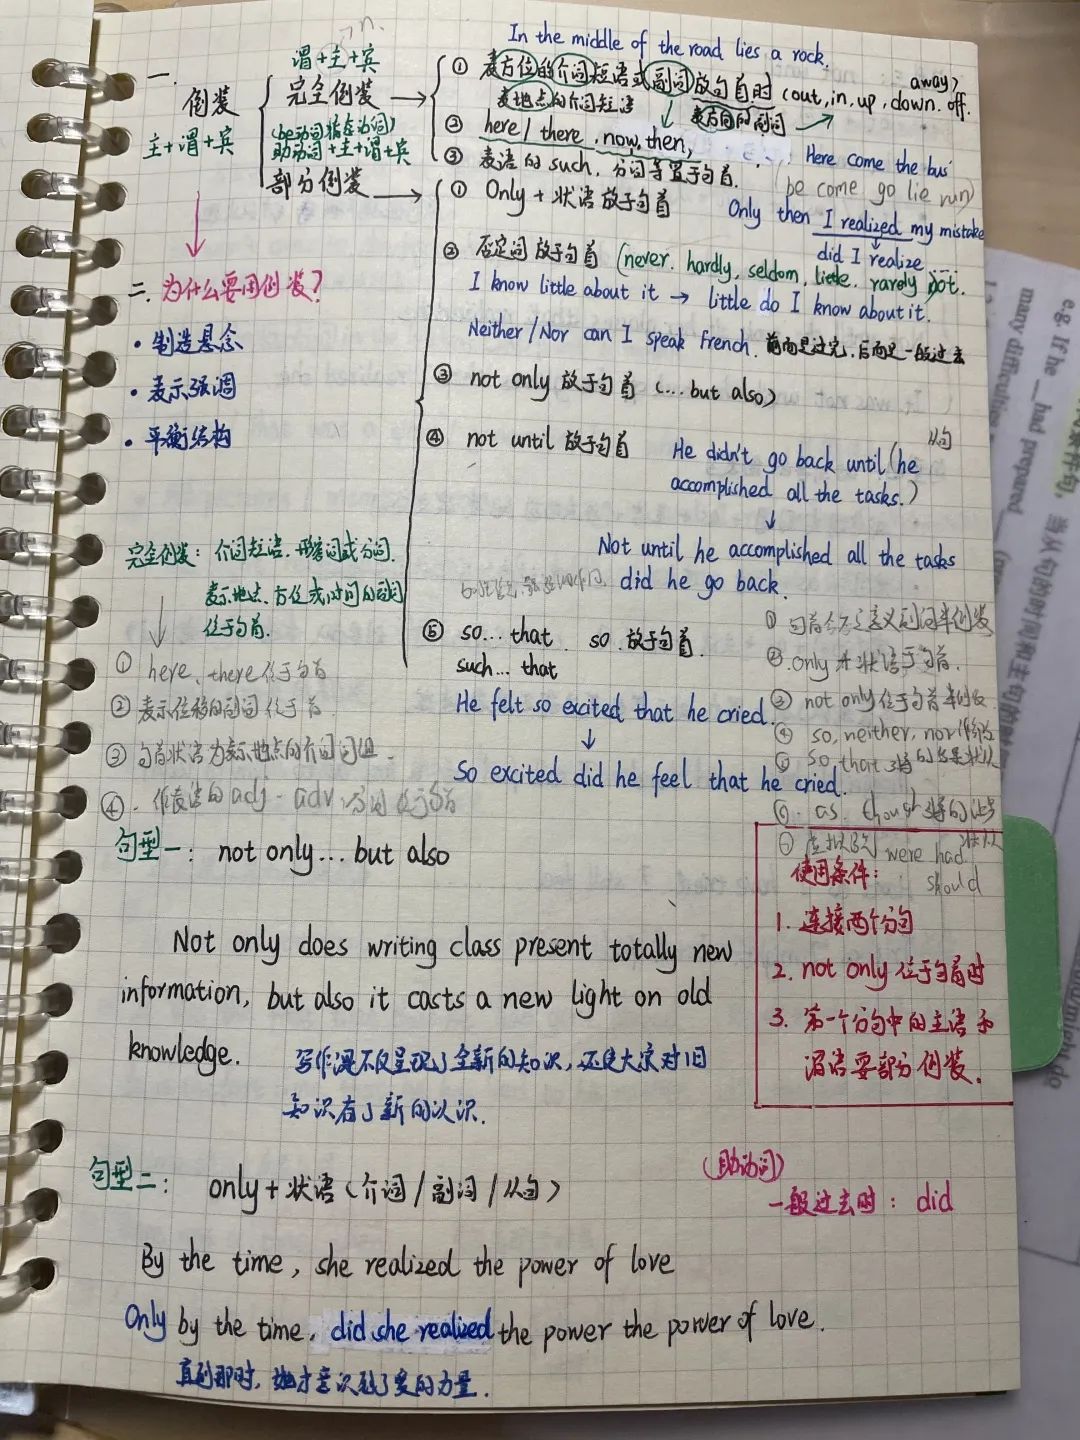 In the middle of the road lies a rock.
谓+主+宾
一. 倒装
主+谓+宾
完全倒装
(be动词 情态动词)
助动词+主+谓+宾
部分倒装
① 表方位的介词短语或副词放句首时 (out, in, up, down, off.
away)
表地点的介词短语
表方向的副词
② here / there, now, then,
③ 表语的such, 分词等置于句首.
Here come the bus
(be come go lie run)
① Only + 状语放于句首
Only then I realized my mistake
did I realize
② 否定词放于句首 (never. hardly, seldom, little, rarely not.
I know little about it → little do I know about it.
Neither/Nor can I speak French. 前面是过完, 后面是一般过去
③ not only 放于句首 (...but also)
④ not until 放于句首
从句
He didn't go back until (he
accomplished all the tasks.)
Not until he accomplished all the tasks
did he go back.
⑤ so... that so 放于句首.
such... that
He felt so excited that he cried.
So excited did he feel that he cried.
二. 为什么要用倒装?
• 制造悬念
• 表示强调
• 平衡结构
完全倒装: 介词短语. 形容词或分词.
表示地点、方位或时间的副词
位于句首.
① here、there 位于句首
② 表示位移的副词位于首
③ 句首状语为表示地点的介词词组.
④ 作表语的adj - adv 分词位于句首
① 句首含否定义副词半倒装
② only + 状语于句首.
③ not only 位于句首半倒装
④ so, neither, nor
⑤ so, that
⑥ as. though
were had.
should
句型一: not only... but also
Not only does writing class present totally new
information, but also it casts a new light on old
knowledge.
写作课不仅呈现了全新的知识, 还使大家对旧
知识有了新的认识.
使用条件:
1. 连接两个分句
2. not only 位于句首时
3. 第一个分句中的主语和
谓语要部分倒装.
句型二: only + 状语 (介词 / 副词 / 从句)
(助动词)
一般过去时: did
By the time, she realized the power of love
Only by the time, did she realized the power the power of love.
直到那时, 她才意识到了爱的力量.
e.g. If he __ had prepared
many difficulties